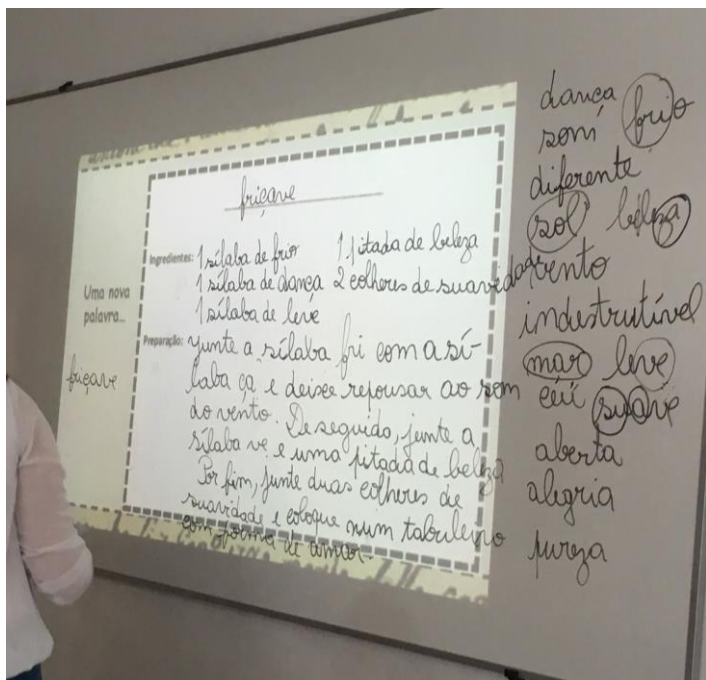 friçave
Ingredientes: 1 sílaba de frio 1 pitada de beleza
1 sílaba de dança 2 colheres de suavidade
1 sílaba de leve
Preparação: junte a sílaba fri com a sí-
laba ça e deixe repousar ao som
do vento. De seguida, junte a
sílaba ve e uma pitada de beleza
Por fim, junte duas colheres de
suavidade e coloque num tabuleiro
com forma de amor.
Uma nova
palavra...
friçave
dança
som frio
diferente
sol beleza
vento
indestrutível
mar leve
céu suave
aberta
alegria
pureza